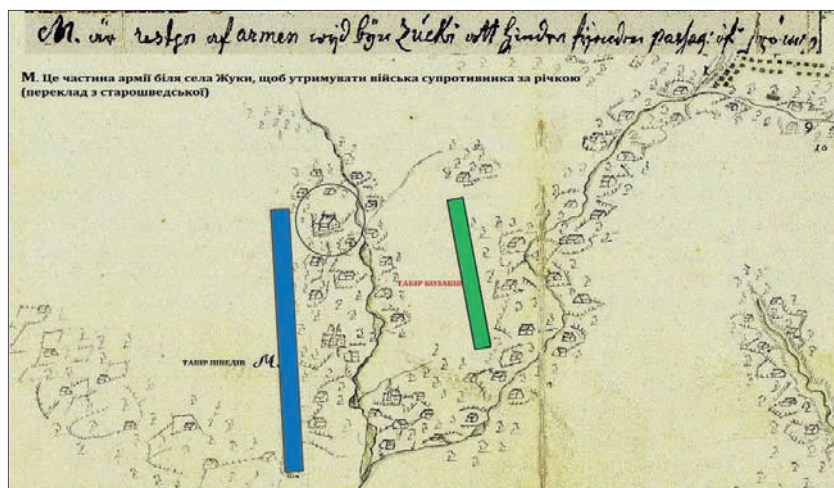 M. är resten af armen wijd bÿn Zúcki att hindra
М. Це частина армії біля села Жуки, щоб утримувати війська супротивника за річкою
(переклад з старошведської)
ТАБІР КОЗАКІВ
ТАБІР ШВЕДІВ M.
9
10